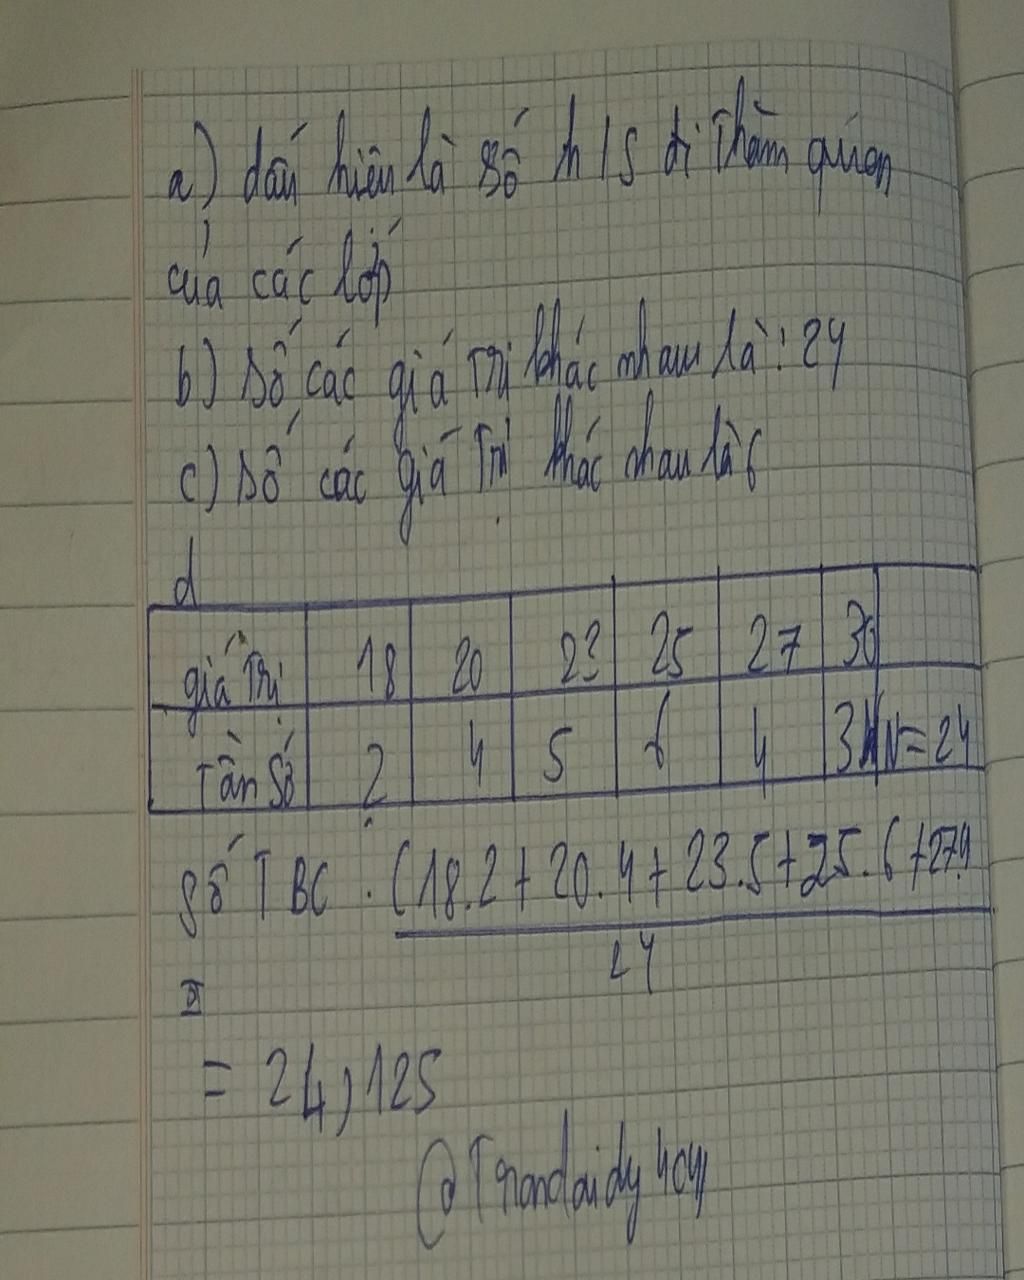 a) dấu hiệu là số h/s đi Thăm quan
của các lớp
b) số các giá trị khác nhau là: 24
c) số các giá trị khác nhau là 6
d
giá Trị 18 20 23 25 27 30
Tần số 2 4 5 6 4 3 N=24
số TBC : (18.2+20.4+23.5+25.6+27.4
24
= 24,125